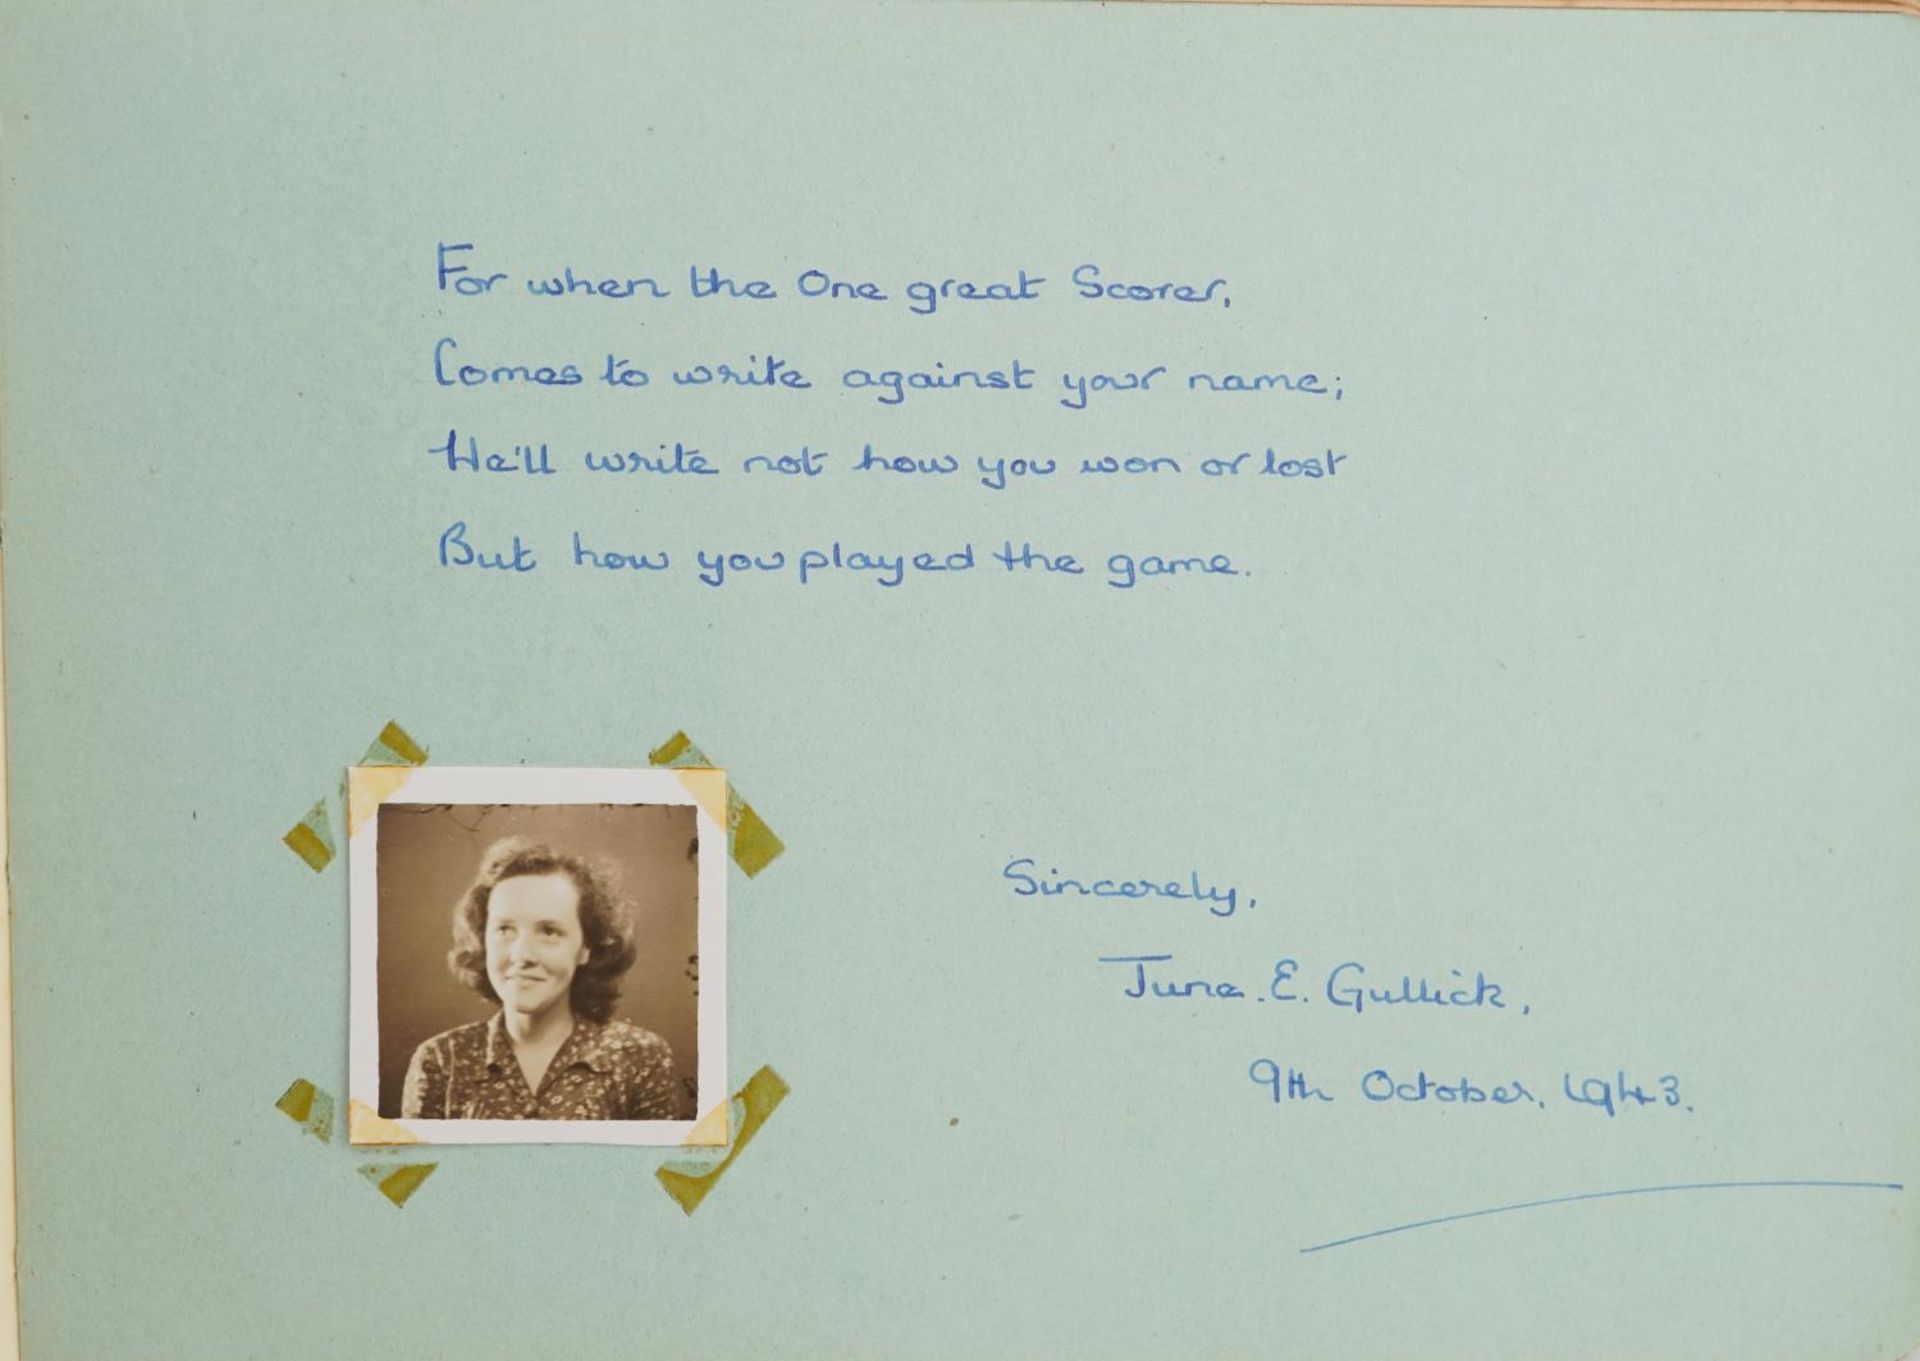 For when the One great Scorer,
Comes to write against your name;
He'll write not how you won or lost
But how you played the game.
Sincerely,
June. E. Gullick,
9th October. 1943.